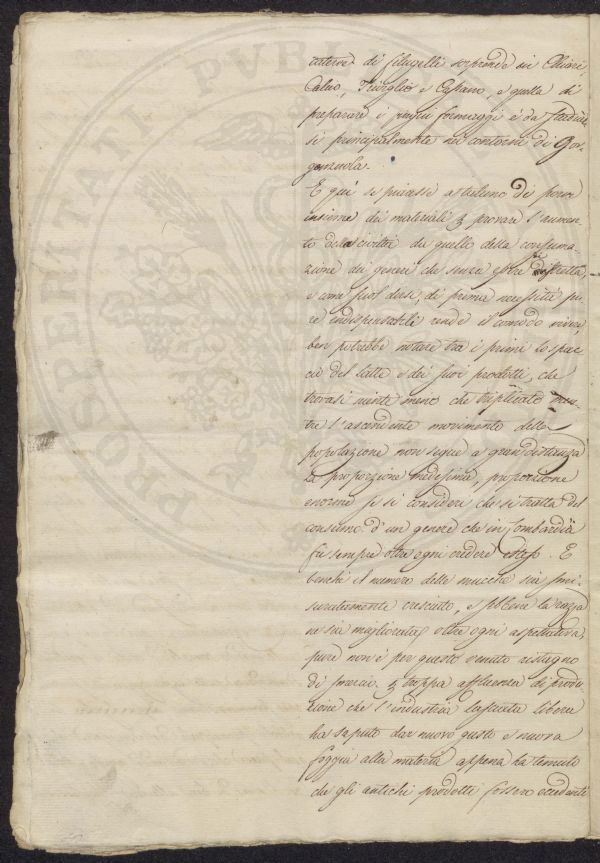 di filugelli sorprende in Chiari,
Calcio, Triviglio e Cassano, e quella di
preparare i formaggi è da
si principalmente nei contorni di Gor-
gonzuola.
E qui se piacesse a taluno di porre
insieme dei materiali p provare l'aumen-
to della civiltà da quello della consuma-
zione dei generi che senza essere di stretta,
e come suol dirsi, di prima necessità pu-
re indispensabili rende il comodo vivere
ben potrebbe notare tra i primi lo spac-
cio del latte e dei suoi prodotti, che
trovasi niente meno che triplicato men-
tre l'ascendente movimento della
popolazione non segue a gran distanza
la proporzione medesima, proporzione
enorme se si consideri che si tratta del
consumo d'un genere che in Lombardia
fu sempre oltre ogni credere esteso. E
benché il numero delle mucche sia smi-
suratamente cresciuto, e sebbene la razza
ne sia migliorata oltre ogni aspettativa,
pure non è per questo venuto ristagno
di smercio p troppa affluenza di produ-
zione che l'industria lasciata libera
ha saputo dar nuovo gusto e nuova
foggia alla materia appena ha temuto
che gli antichi prodotti fossero eccedenti
PROSPERITATI PVBLICAE